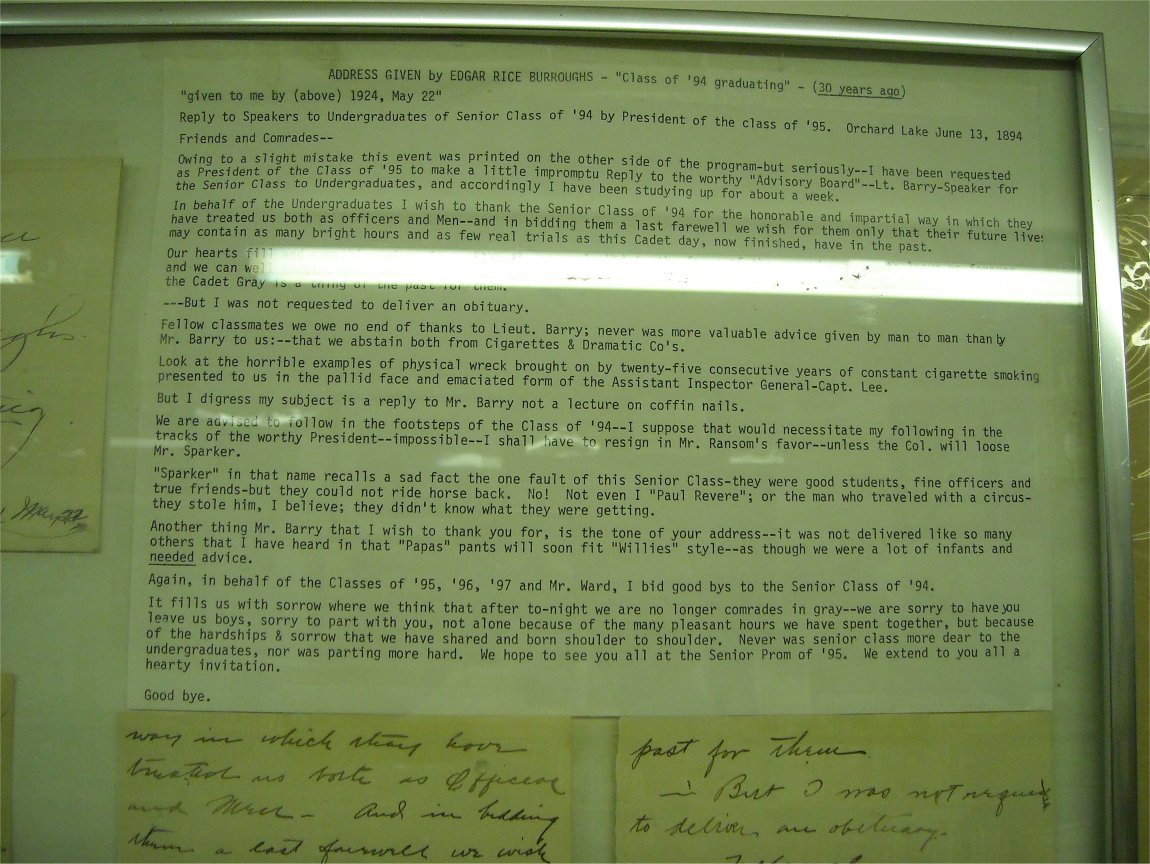 ADDRESS GIVEN by EDGAR RICE BURROUGHS - "Class of '94 graduating" - (30 years ago)
"given to me by (above) 1924, May 22"
Reply to Speakers to Undergraduates of Senior Class of '94 by President of the class of '95. Orchard Lake June 13, 1894
Friends and Comrades--
Owing to a slight mistake this event was printed on the other side of the program-but seriously--I have been requested
as President of the Class of '95 to make a little impromptu Reply to the worthy "Advisory Board"--Lt. Barry-Speaker for
the Senior Class to Undergraduates, and accordingly I have been studying up for about a week.
In behalf of the Undergraduates I wish to thank the Senior Class of '94 for the honorable and impartial way in which they
have treated us both as officers and Men--and in bidding them a last farewell we wish for them only that their future lives
may contain as many bright hours and as few real trials as this Cadet day, now finished, have in the past.
Our hearts fill and
and we can well
the Cadet Gray is a thing of the past for them.
---But I was not requested to deliver an obituary.
Fellow classmates we owe no end of thanks to Lieut. Barry; never was more valuable advice given by man to man than by
Mr. Barry to us:--that we abstain both from Cigarettes & Dramatic Co's.
Look at the horrible examples of physical wreck brought on by twenty-five consecutive years of constant cigarette smoking
presented to us in the pallid face and emaciated form of the Assistant Inspector General-Capt. Lee.
But I digress my subject is a reply to Mr. Barry not a lecture on coffin nails.
We are advised to follow in the footsteps of the Class of '94--I suppose that would necessitate my following in the
tracks of the worthy President--impossible--I shall have to resign in Mr. Ransom's favor--unless the Col. will loose
Mr. Sparker.
"Sparker" in that name recalls a sad fact the one fault of this Senior Class-they were good students, fine officers and
true friends-but they could not ride horse back. No! Not even I "Paul Revere"; or the man who traveled with a circus-
they stole him, I believe; they didn't know what they were getting.
Another thing Mr. Barry that I wish to thank you for, is the tone of your address--it was not delivered like so many
others that I have heard in that "Papas" pants will soon fit "Willies" style--as though we were a lot of infants and
needed advice.
Again, in behalf of the Classes of '95, '96, '97 and Mr. Ward, I bid good bys to the Senior Class of '94.
It fills us with sorrow where we think that after to-night we are no longer comrades in gray--we are sorry to have you
leave us boys, sorry to part with you, not alone because of the many pleasant hours we have spent together, but because
of the hardships & sorrow that we have shared and born shoulder to shoulder. Never was senior class more dear to the
undergraduates, nor was parting more hard. We hope to see you all at the Senior Prom of '95. We extend to you all a
hearty invitation.
Good bye.
way in which they have
treated us both as Officers
and Men - And in bidding
them a last farewell we wish
past for them
- But I was not reques
to deliver an obituary.